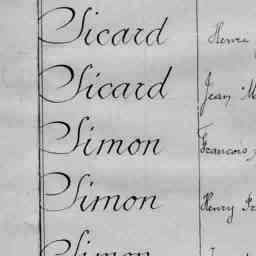 Sicard Henri
Sicard Jean M
Simon Francois
Simon Henry Fr
Simon